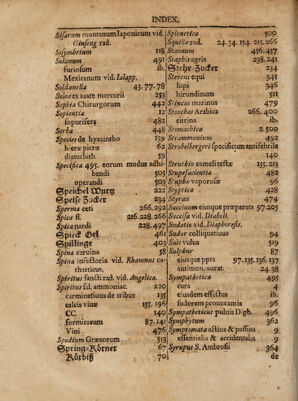 INDEX.
Sisarum montanum Iaponicum vid.
Ginseng rad.
Sisymbrium 118
Solanum 491
furiosum ib.
Mexicanum vid. Ialapp.
Soldanella 43. 77. 78
Solerex iuxte mercurii 253
Sophia Chirurgorum 442
Sopientia 12
soporifera 482
Sorba 448
Species de hyazintho 139
hieræ picræ 62
diaturbith 59
Specifica 495. eorum modus adhi-
bendi 505
operandi 503
Speichel Wurtz 222
Speise Zucker 234
Sperma ceti 266. 292
Spica fl. 216. 228. 266
Spica nardi 228. 497
Spick Oel 461
Spillinge 403
Spina cervina 58
Spina infectoria vid. Rhamnus ca-
tharticus.
Spiritus sancti rad. vid. Angelica.
Spiritus sal. ammoniac. 220
carminativus de tribus 135
calcis vivæ 157. 196
CC. 140
formicarum 87. 141
Vini 476
Spodium Græcorum 513
Spring-Körner 67
Kürbiß 70
Splenetica 500
Squilla rad. 24. 34. 154. 215. 266
Stannum 456. 457
Staphisagria 238. 241
Stechr-Zucker 234
Stercus equi 345
lupi 346
hirundinum 511
Stincus marinus 479
Stoechas Arabica 266. 400
citrina ib.
Stomachica 2. 500
Strammonium 492
Strobelbergeri specificum antifebrile
140
Struthio cameli testæ 155. 213
Stupefacientia 482
Stuphæ vaporosæ 96
Styptica 428
Styrax 474
Succinum eiusque præparata 97. 205
Succisa vid. Diaboli.
Sudatio vid. Diaphoresis.
Sudor colliquativus 94
Suis vulvus 519
Sulphur 87
eiusque ppta 97. 135. 136. 137
antimon. aurat. 24. 38
Sympathetica 495
cura 4
eiusdem effectus ib.
sudorem provocantis 96
Sympatheticus pulvis Digb. 496
Symphytum 362
Symptomata activa & passiva 9
essentialia & accidentalia 9
Syrupus S. Ambrosii 364
de